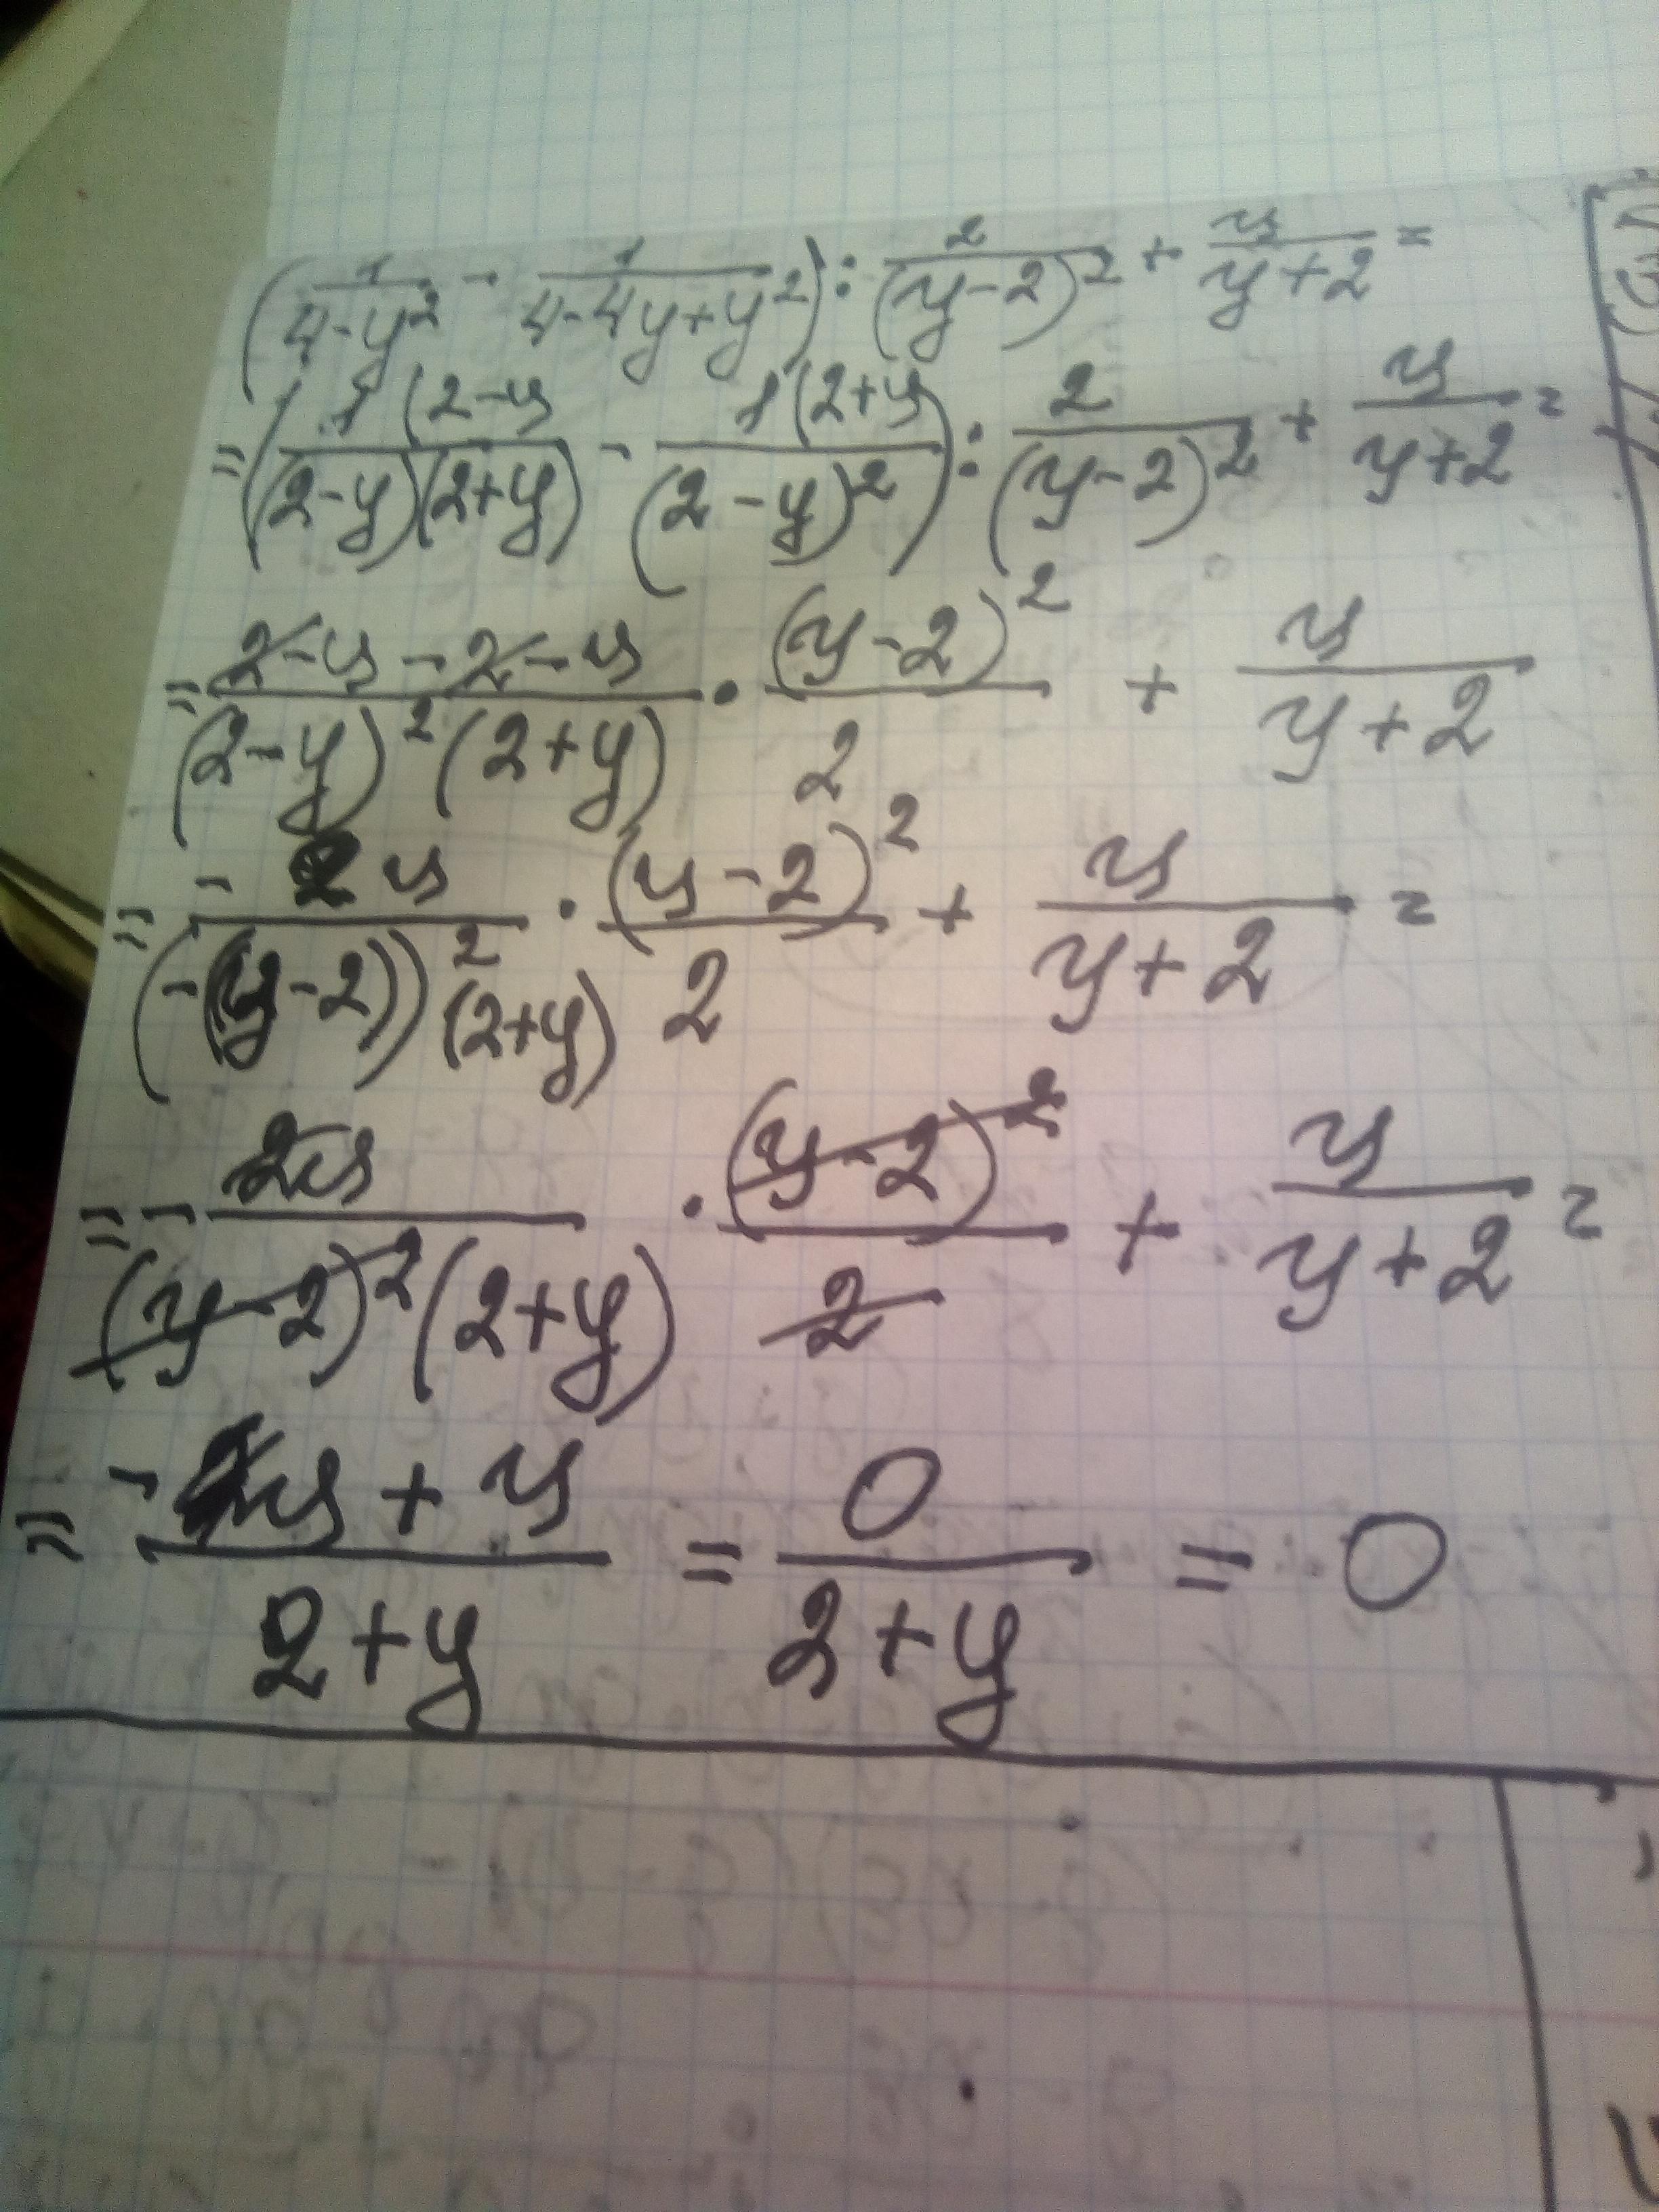 (1/(4-y²) - 1/(4-4y+y²)) : 2/(y-2)² + y/(y+2) =
= (1(2-y/((2-y)(2+y)) - 1(2+y)/(2-y)²) : 2/(y-2)² + y/(y+2) =
= (2-y-2-y)/((2-y)²(2+y)) · (y-2)²/2 + y/(y+2)
= -2y/((-(y-2))²(2+y)) · (y-2)²/2 + y/(y+2) =
= -2y/((y-2)²(2+y)) · (y-2)²/2 + y/(y+2) =
= (-y+y)/(2+y) = 0/(2+y) = 0